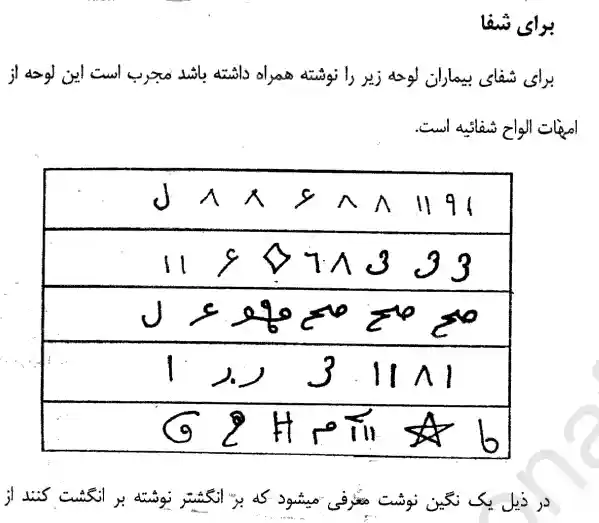 برای شفا
برای شفای بیماران لوحه زیر را نوشته همراه داشته باشد مجرب است این لوحه از
امهات الواح شفائیه است.
۱۹۱۱ ۸ ۸ ۶ ۸ ۸ ل
۳ ۳ ۳ ۸ ٦ ◇ ۶ ۱۱
صح صح صح ۶ ل
۱ ۸ ۱۱ ۳ ر.ر ۱
ط ☆ ااا م H
در ذیل یک نگین نوشت معرفی میشود که بر انگشتر نوشته بر انگشت کنند از